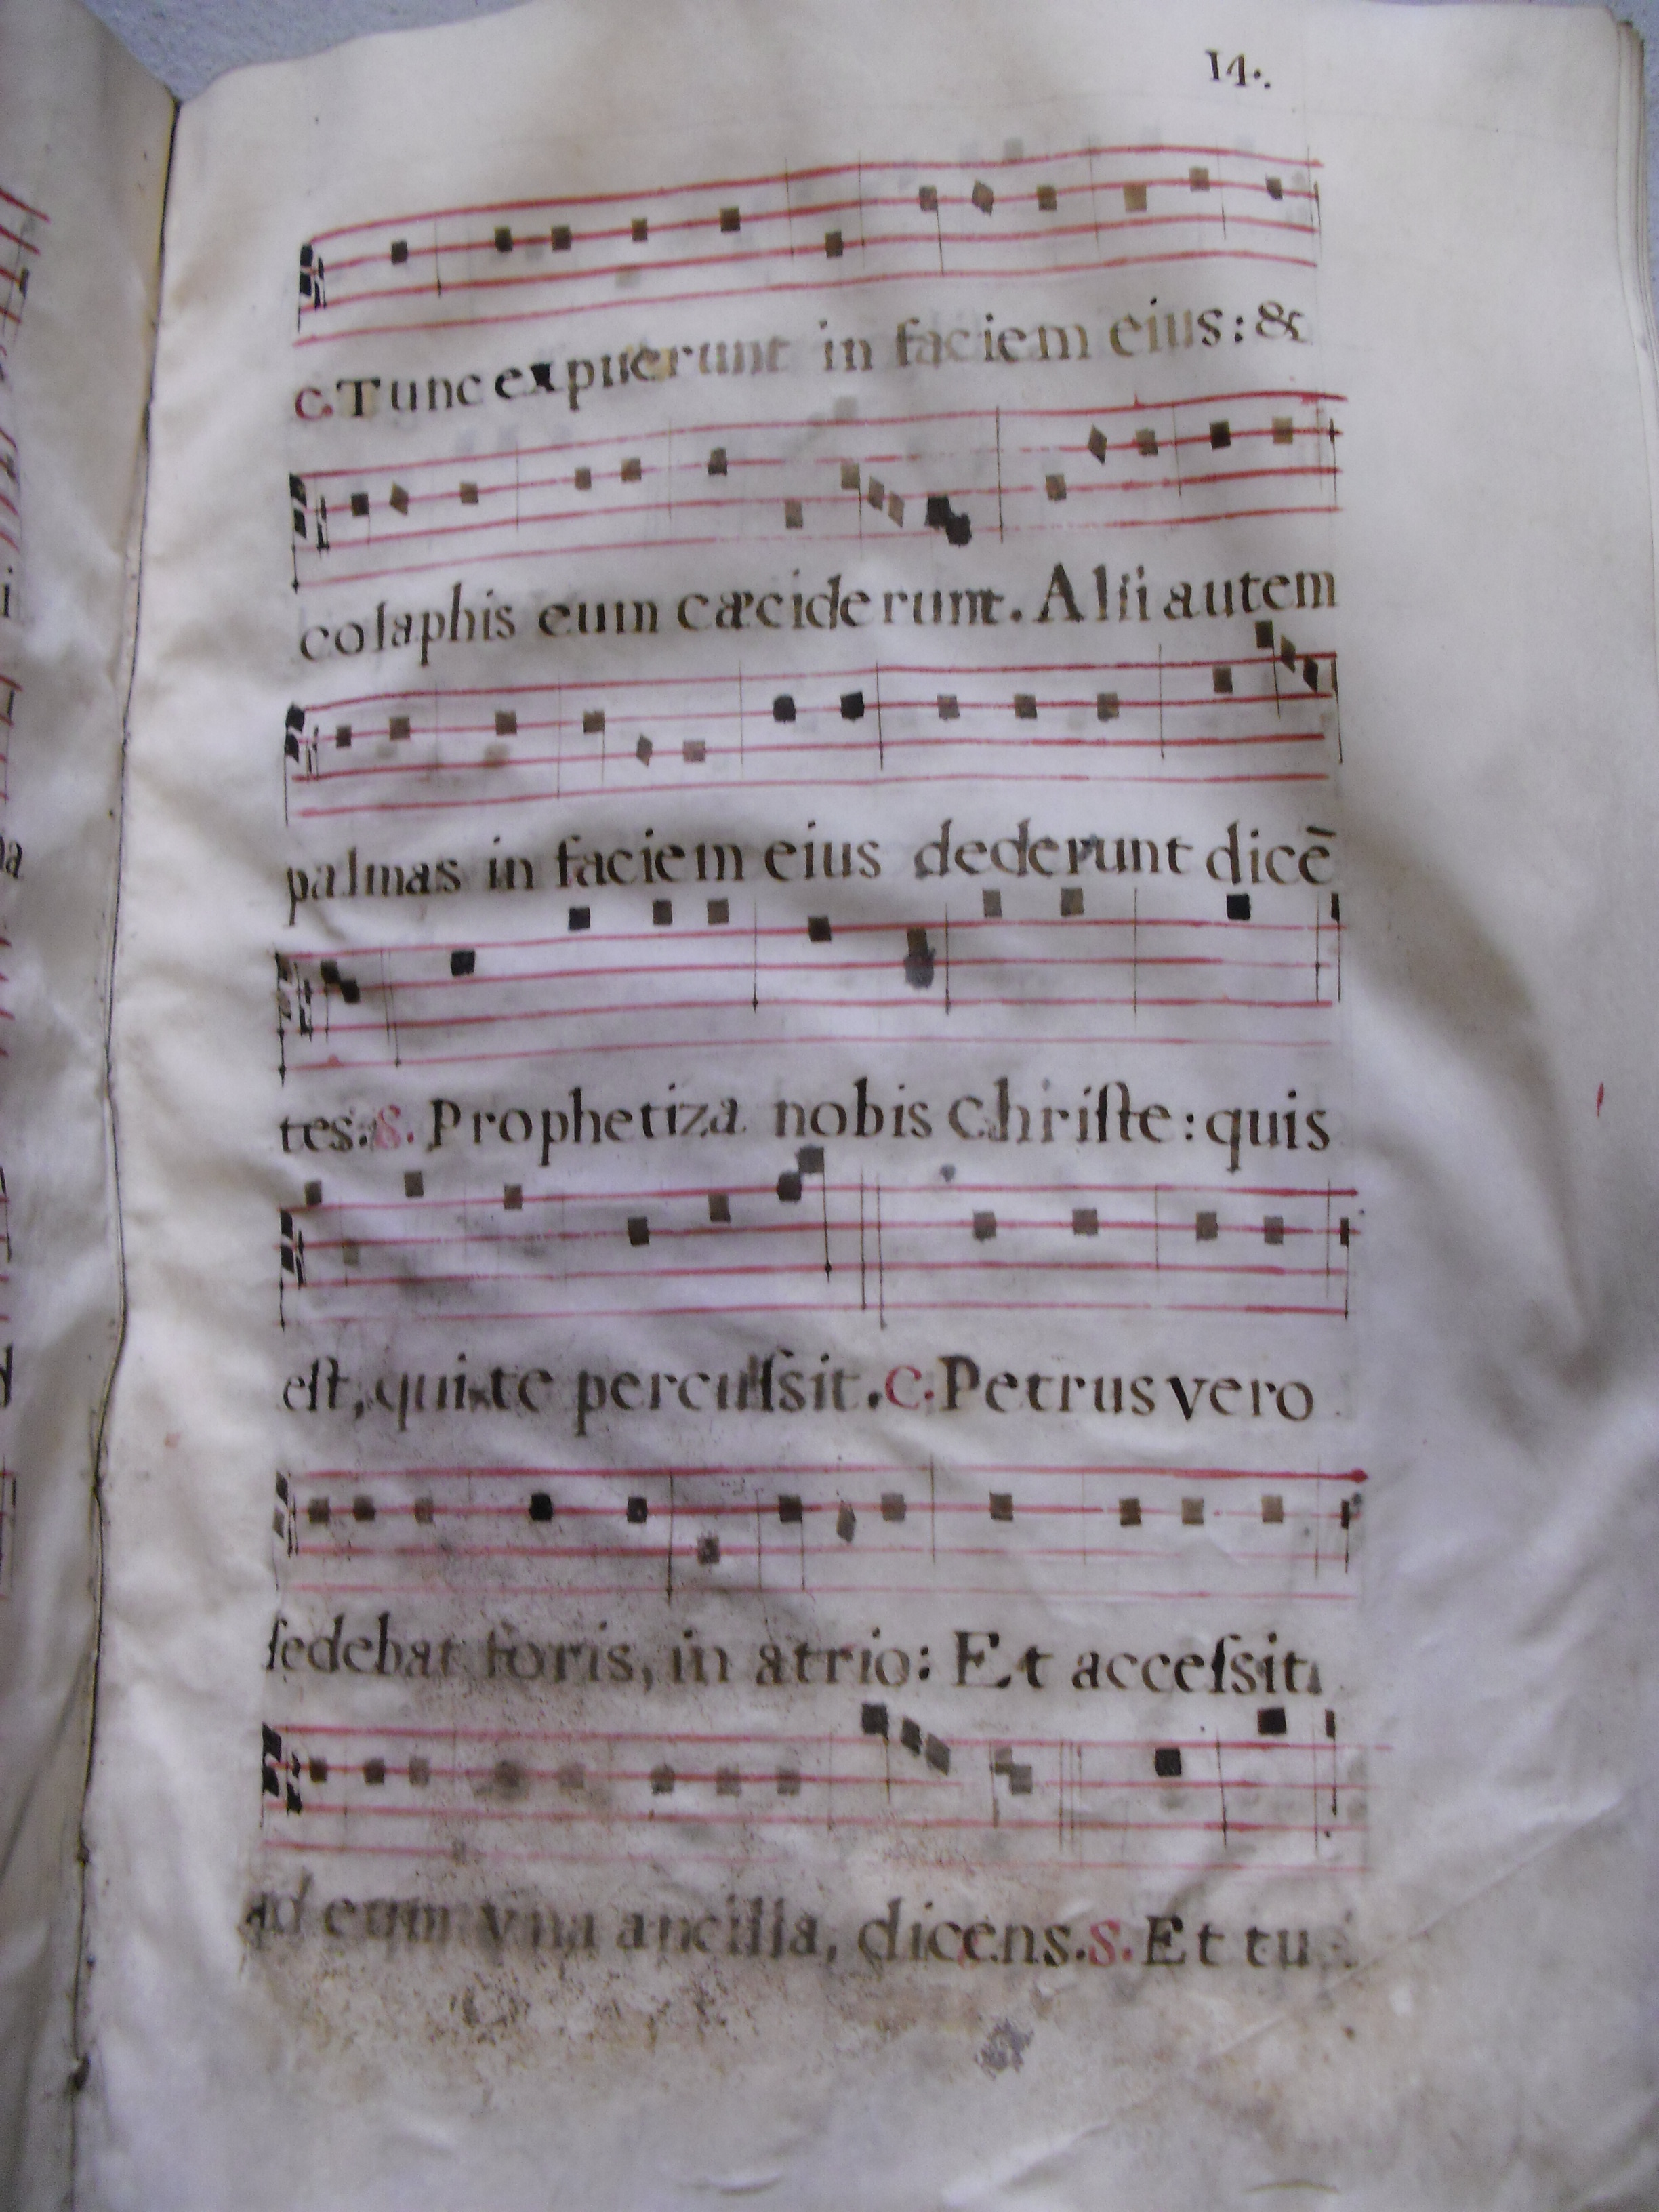 14.
C. Tunc expuerunt in faciem eius: &
colaphis eum cæciderunt. Alii autem
palmas in faciem eius dederunt dicē
tes. S. Prophetiza nobis Chriſte: quis
eſt, qui te percuſsit. C. Petrus vero
ſedebat foris, in atrio: Et acceſsit
ad eum vna ancilla, dicens. S. Et tu